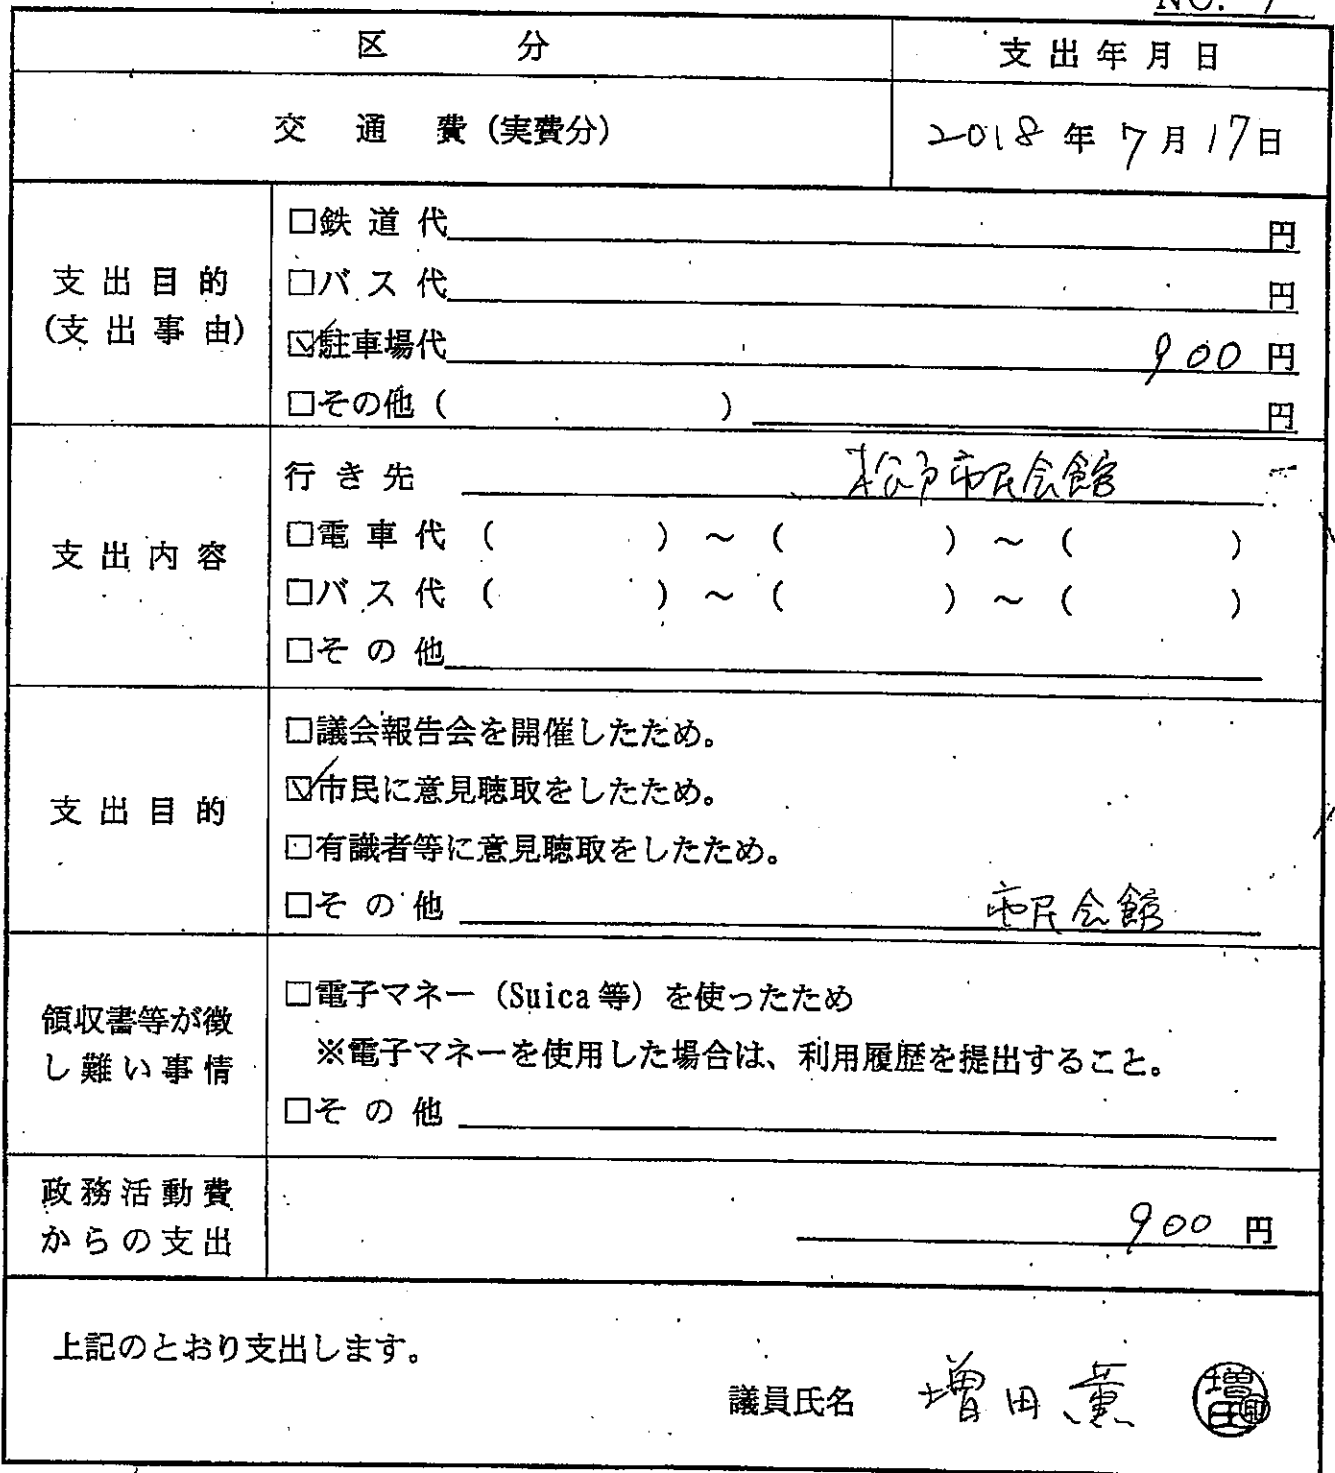 NO. 7
区 分 支出年月日
交 通 費(実費分) 2018年7月17日
支出目的
(支出事由)
□鉄道代 円
□バス代 円
☑駐車場代 900円
□その他( ) 円
支出内容
行き先 松戸市民会館
□電車代( )~( )~( )
□バス代( )~( )~( )
□その他
支出目的
□議会報告会を開催したため。
☑市民に意見聴取をしたため。
□有識者等に意見聴取をしたため。
□その他 市民会館
領収書等が徴
し難い事情
□電子マネー(Suica等)を使ったため
※電子マネーを使用した場合は、利用履歴を提出すること。
□その他
政務活動費
からの支出
900円
上記のとおり支出します。
議員氏名 増田薫 増田